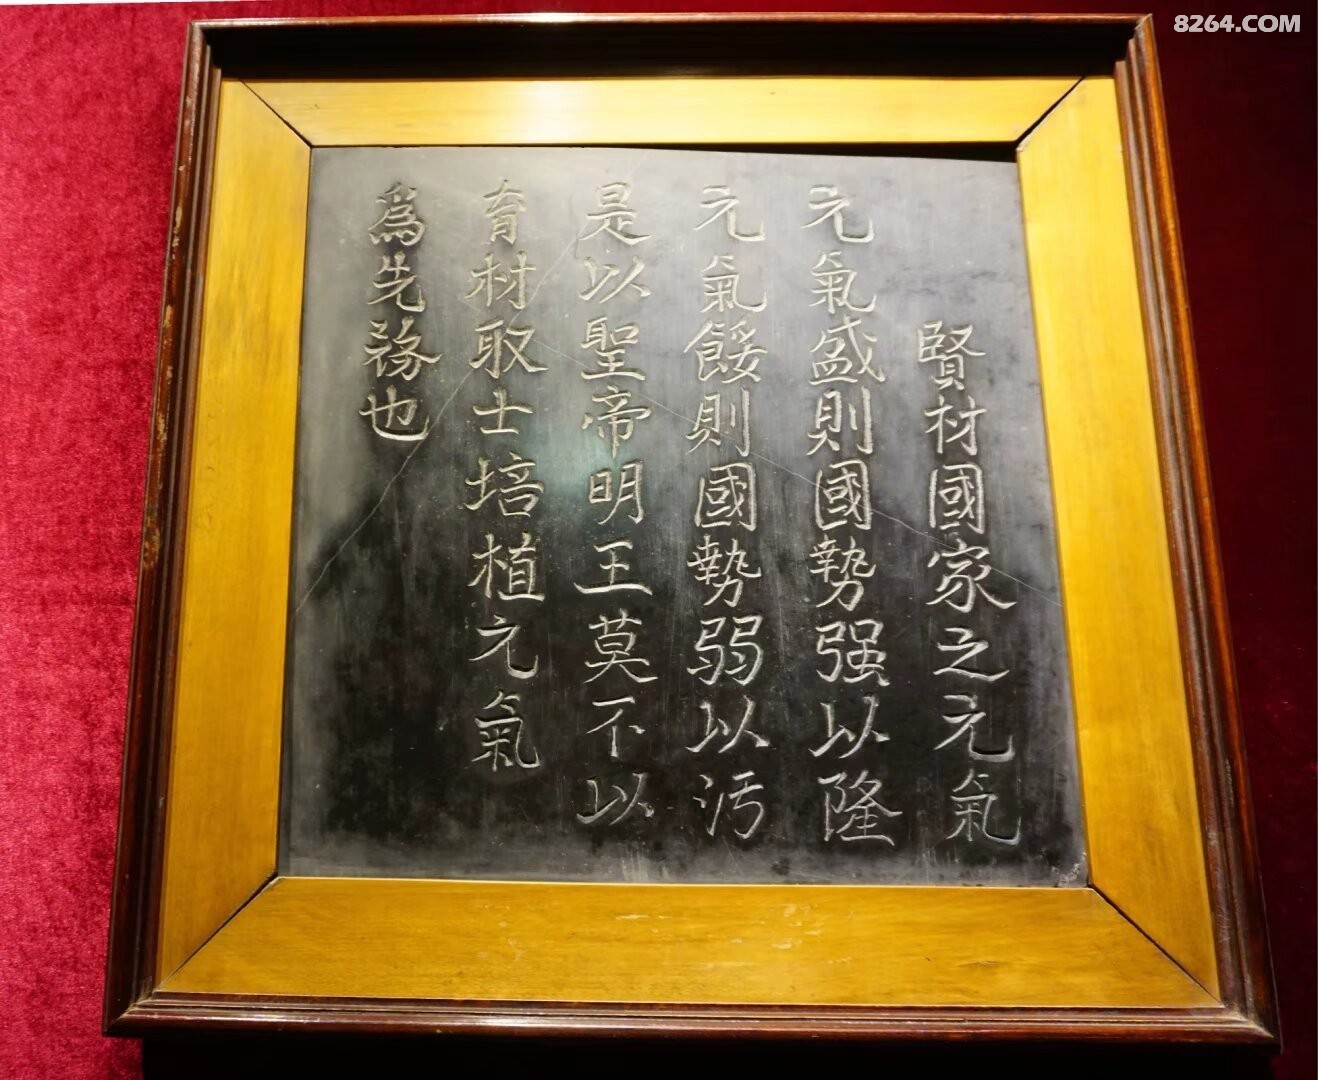 賢材國家之元氣
元氣盛則國勢强以隆
元氣餒則國勢弱以污
是以聖帝明王莫不以
育材取士培植元氣
為先務也
8264.COM